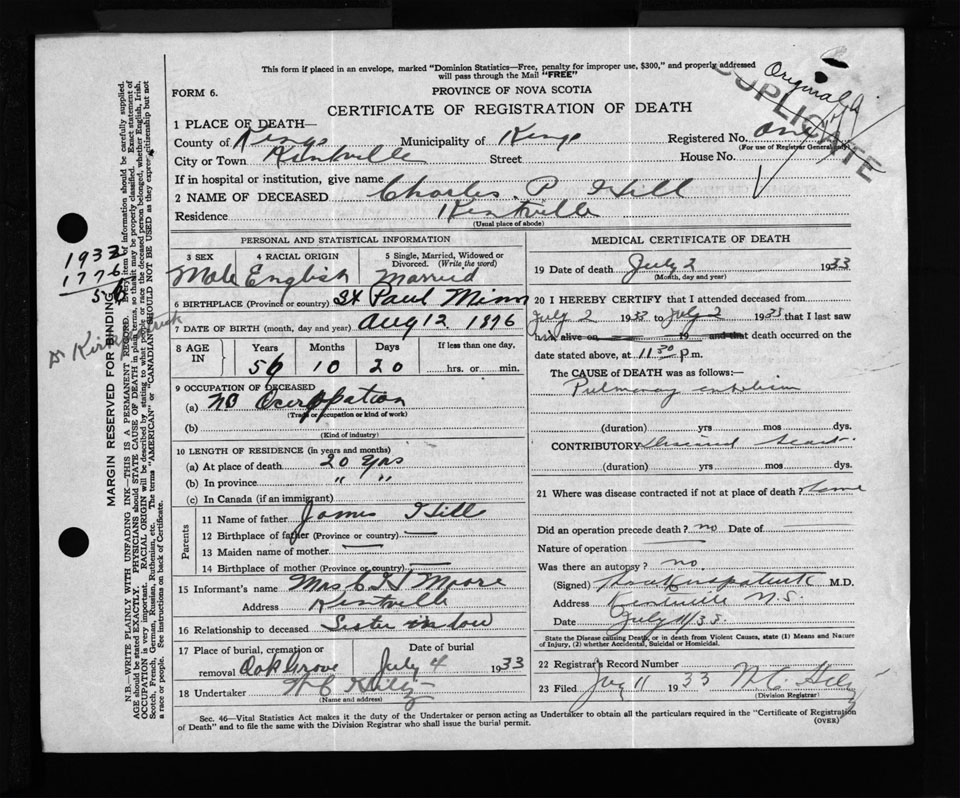 This form if placed in an envelope, marked "Dominion Statistics—Free, penalty for improper use, $300," and properly addressed
will pass through the Mail "FREE"
FORM 6.
PROVINCE OF NOVA SCOTIA
CERTIFICATE OF REGISTRATION OF DEATH
DUPLICATE
Original
1 PLACE OF DEATH—
County of Kings Municipality of Kings Registered No.
(For use of Registrar General only)
City or Town Kentville Street House No.
If in hospital or institution, give name
2 NAME OF DECEASED Charles P Hill
Residence Kentville
(Usual place of abode)
PERSONAL AND STATISTICAL INFORMATION
3 SEX 4 RACIAL ORIGIN 5 Single, Married, Widowed or Divorced. (Write the word)
Male English Married
6 BIRTHPLACE (Province or country) St Paul Minn
7 DATE OF BIRTH (month, day and year) Aug 12 1876
8 AGE IN Years Months Days If less than one day,
56 10 20 hrs. or min.
9 OCCUPATION OF DECEASED
(a) no Occupation
(Trade or occupation or kind of work)
(b)
(Kind of industry)
10 LENGTH OF RESIDENCE (in years and months)
(a) At place of death 20 yrs
(b) In province " "
(c) In Canada (if an immigrant)
Parents
11 Name of father James Hill
12 Birthplace of father (Province or country) —
13 Maiden name of mother —
14 Birthplace of mother (Province or country) —
15 Informant's name Mrs C H Moore
Address Kentville
16 Relationship to deceased Sister in law
17 Place of burial, cremation or removal Date of burial
Oak Grove July 4 1933
18 Undertaker
(Name and address)
MEDICAL CERTIFICATE OF DEATH
19 Date of death July 2 1933
(Month, day and year)
20 I HEREBY CERTIFY that I attended deceased from
July 2 1933 to July 2 1933 that I last saw
h alive on 19 and that death occurred on the
date stated above, at 11.30 p.m.
The CAUSE of DEATH was as follows:—
Pulmonary embolism
(duration) yrs mos dys.
CONTRIBUTORY Diseased heart
(duration) yrs mos dys.
21 Where was disease contracted if not at place of death? Home
Did an operation precede death? no Date of
Nature of operation —
Was there an autopsy? no.
(Signed) Kirkpatrick M.D.
Address Kentville N.S.
Date July
State the Disease causing Death, or in death from Violent Causes, state (1) Means and Nature
of Injury, (2) whether Accidental, Suicidal or Homicidal.
22 Registrar's Record Number
23 Filed July 11 1933
(Division Registrar)
Sec. 46—Vital Statistics Act makes it the duty of the Undertaker or person acting as Undertaker to obtain all the particulars required in the "Certificate of Registration
of Death" and to file the same with the Division Registrar who shall issue the burial permit.
(OVER)
MARGIN RESERVED FOR BINDING
N.B.—WRITE PLAINLY WITH UNFADING INK—THIS IS A PERMANENT RECORD. Every item of information should be carefully supplied.
AGE should be stated EXACTLY. PHYSICIANS should STATE CAUSE OF DEATH in plain terms, so that it may be properly classified. Exact statement of
OCCUPATION is very important. RACIAL ORIGIN will be described by stating to what people or race the deceased person belonged, whether English, Irish,
Scotch, French, German, Russian, Ruthenian, etc. The terms "AMERICAN" or "CANADIAN" SHOULD NOT BE USED as they express citizenship but not
a race or people. See instructions on back of Certificate.
1932
1776
56
Dr Kirkpatrick